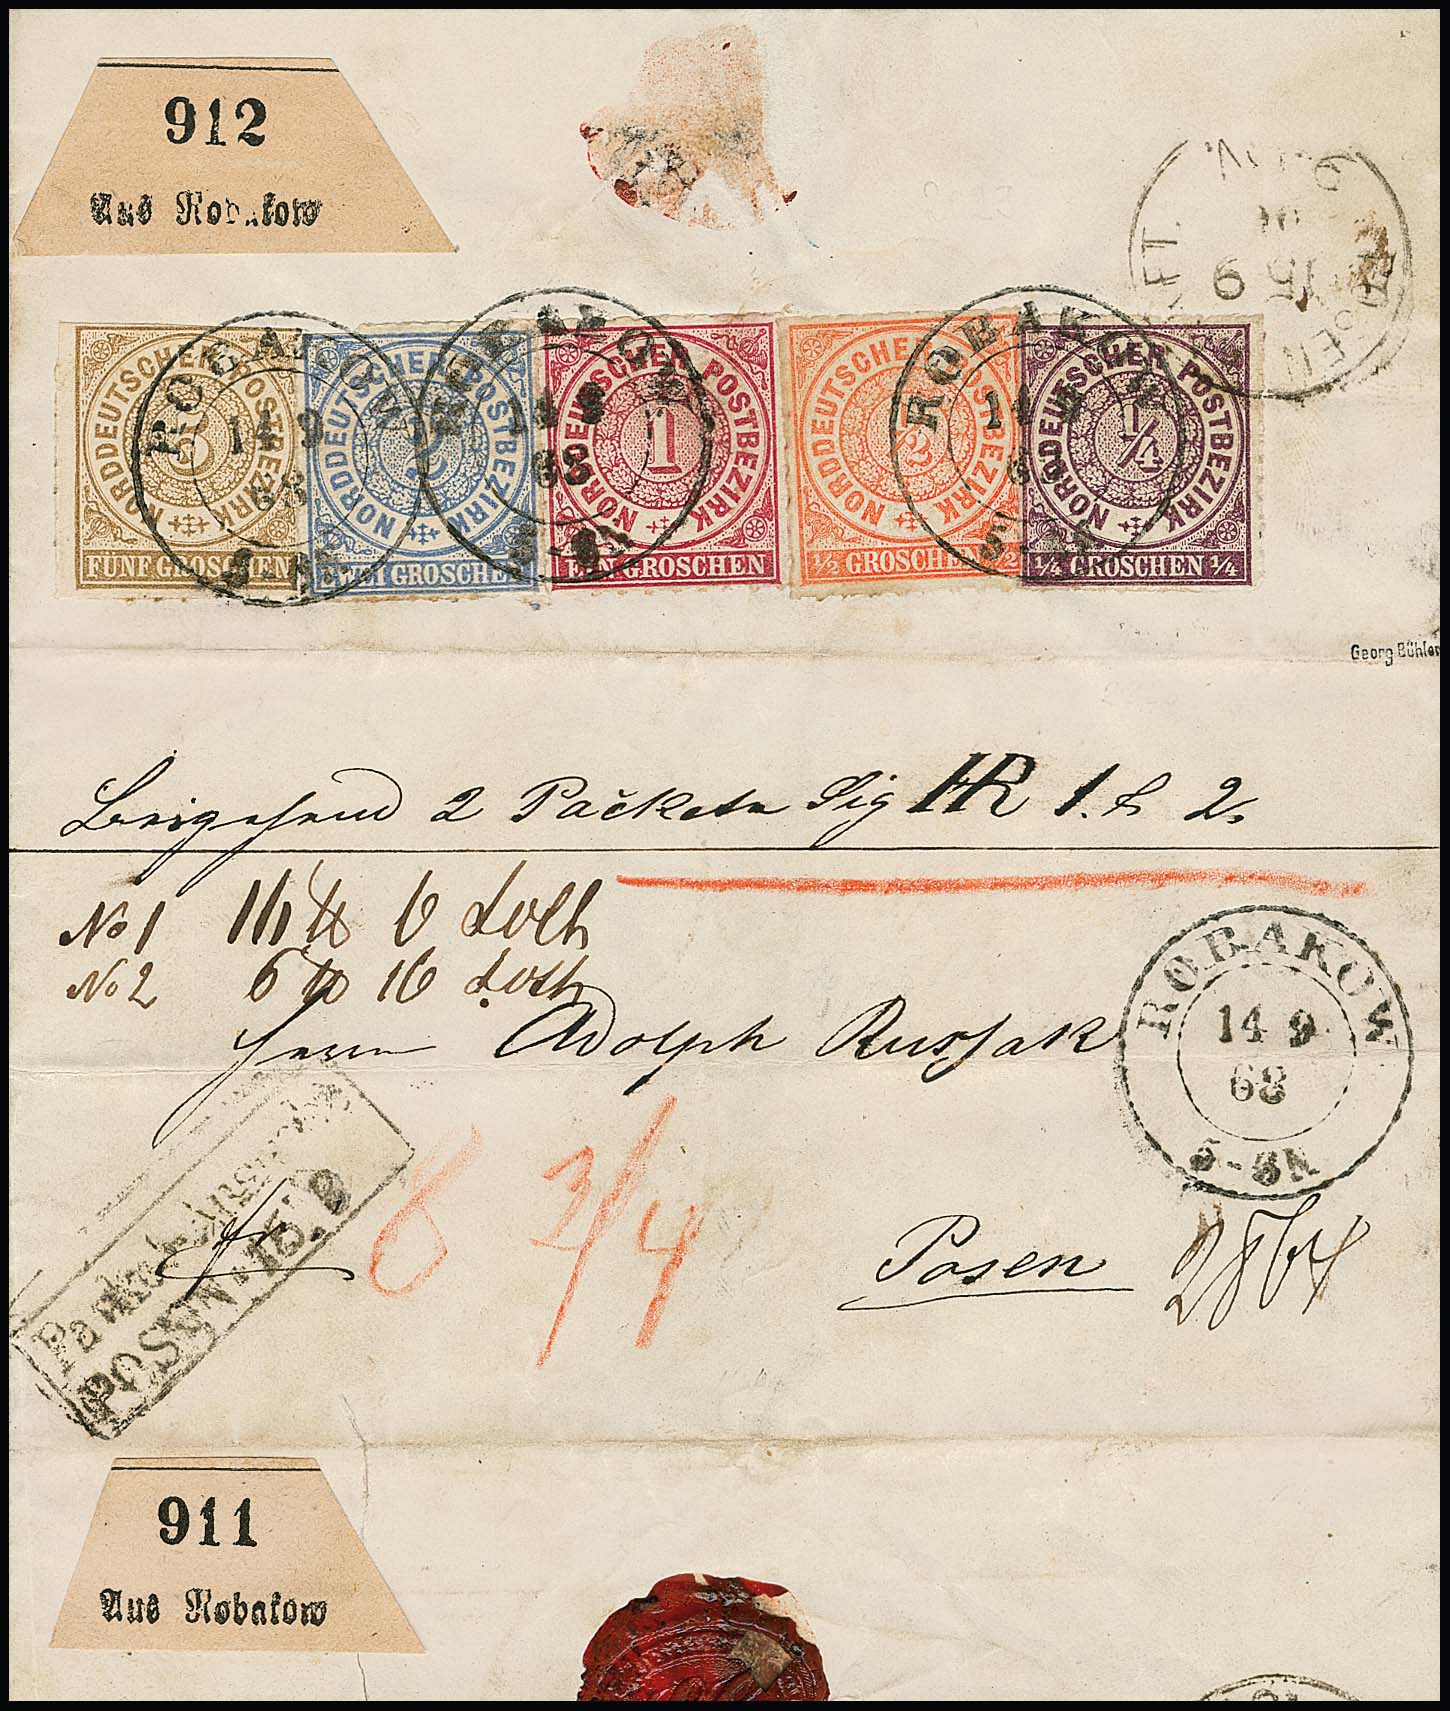 912
Aus Robakow
NORDDEUTSCHER POSTBEZIRK
5
FÜNF GROSCHEN
NORDDEUTSCHER POSTBEZIRK
2
ZWEI GROSCHEN
NORDDEUTSCHER POSTBEZIRK
1
EIN GROSCHEN
NORDDEUTSCHER POSTBEZIRK
1/2
1/2 GROSCHEN 1/2
NORDDEUTSCHER POSTBEZIRK
1/4
1/4 GROSCHEN 1/4
ROBAKOW
14 9
68
ROBAKOW
14 9
68
ROBAKOW
14 9
68
15 9
Georg Bühler
Beigehend 2 Packete Sig HR 1. & 2.
No 1 16 ℔ 6 Loth
No 2 6 ℔ 16 Loth
Herrn Adolph Russak
ROBAKOW
14 9
68
5-8N
fr.
6 3/4
Posen
2864
POSEN 15. 9
911
Aus Robakow